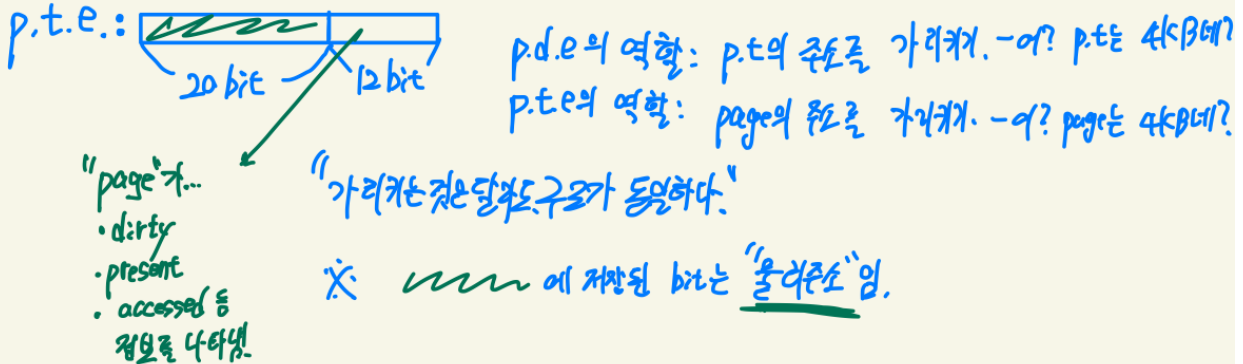 p.t.e.:
20 bit
12 bit
p.d.e의 역할: p.t의 주소를 가리키기. -어? p.t는 4KB네?
p.t.e의 역할: page의 주소를 가리키기. -어? page는 4KB네?
"page"가...
• dirty
• present
• accessed 등
정보를 나타냄.
"가리키는 것은 달라도, 구조가 동일하다."
※ 에 저장된 bit는 "물리주소"임.